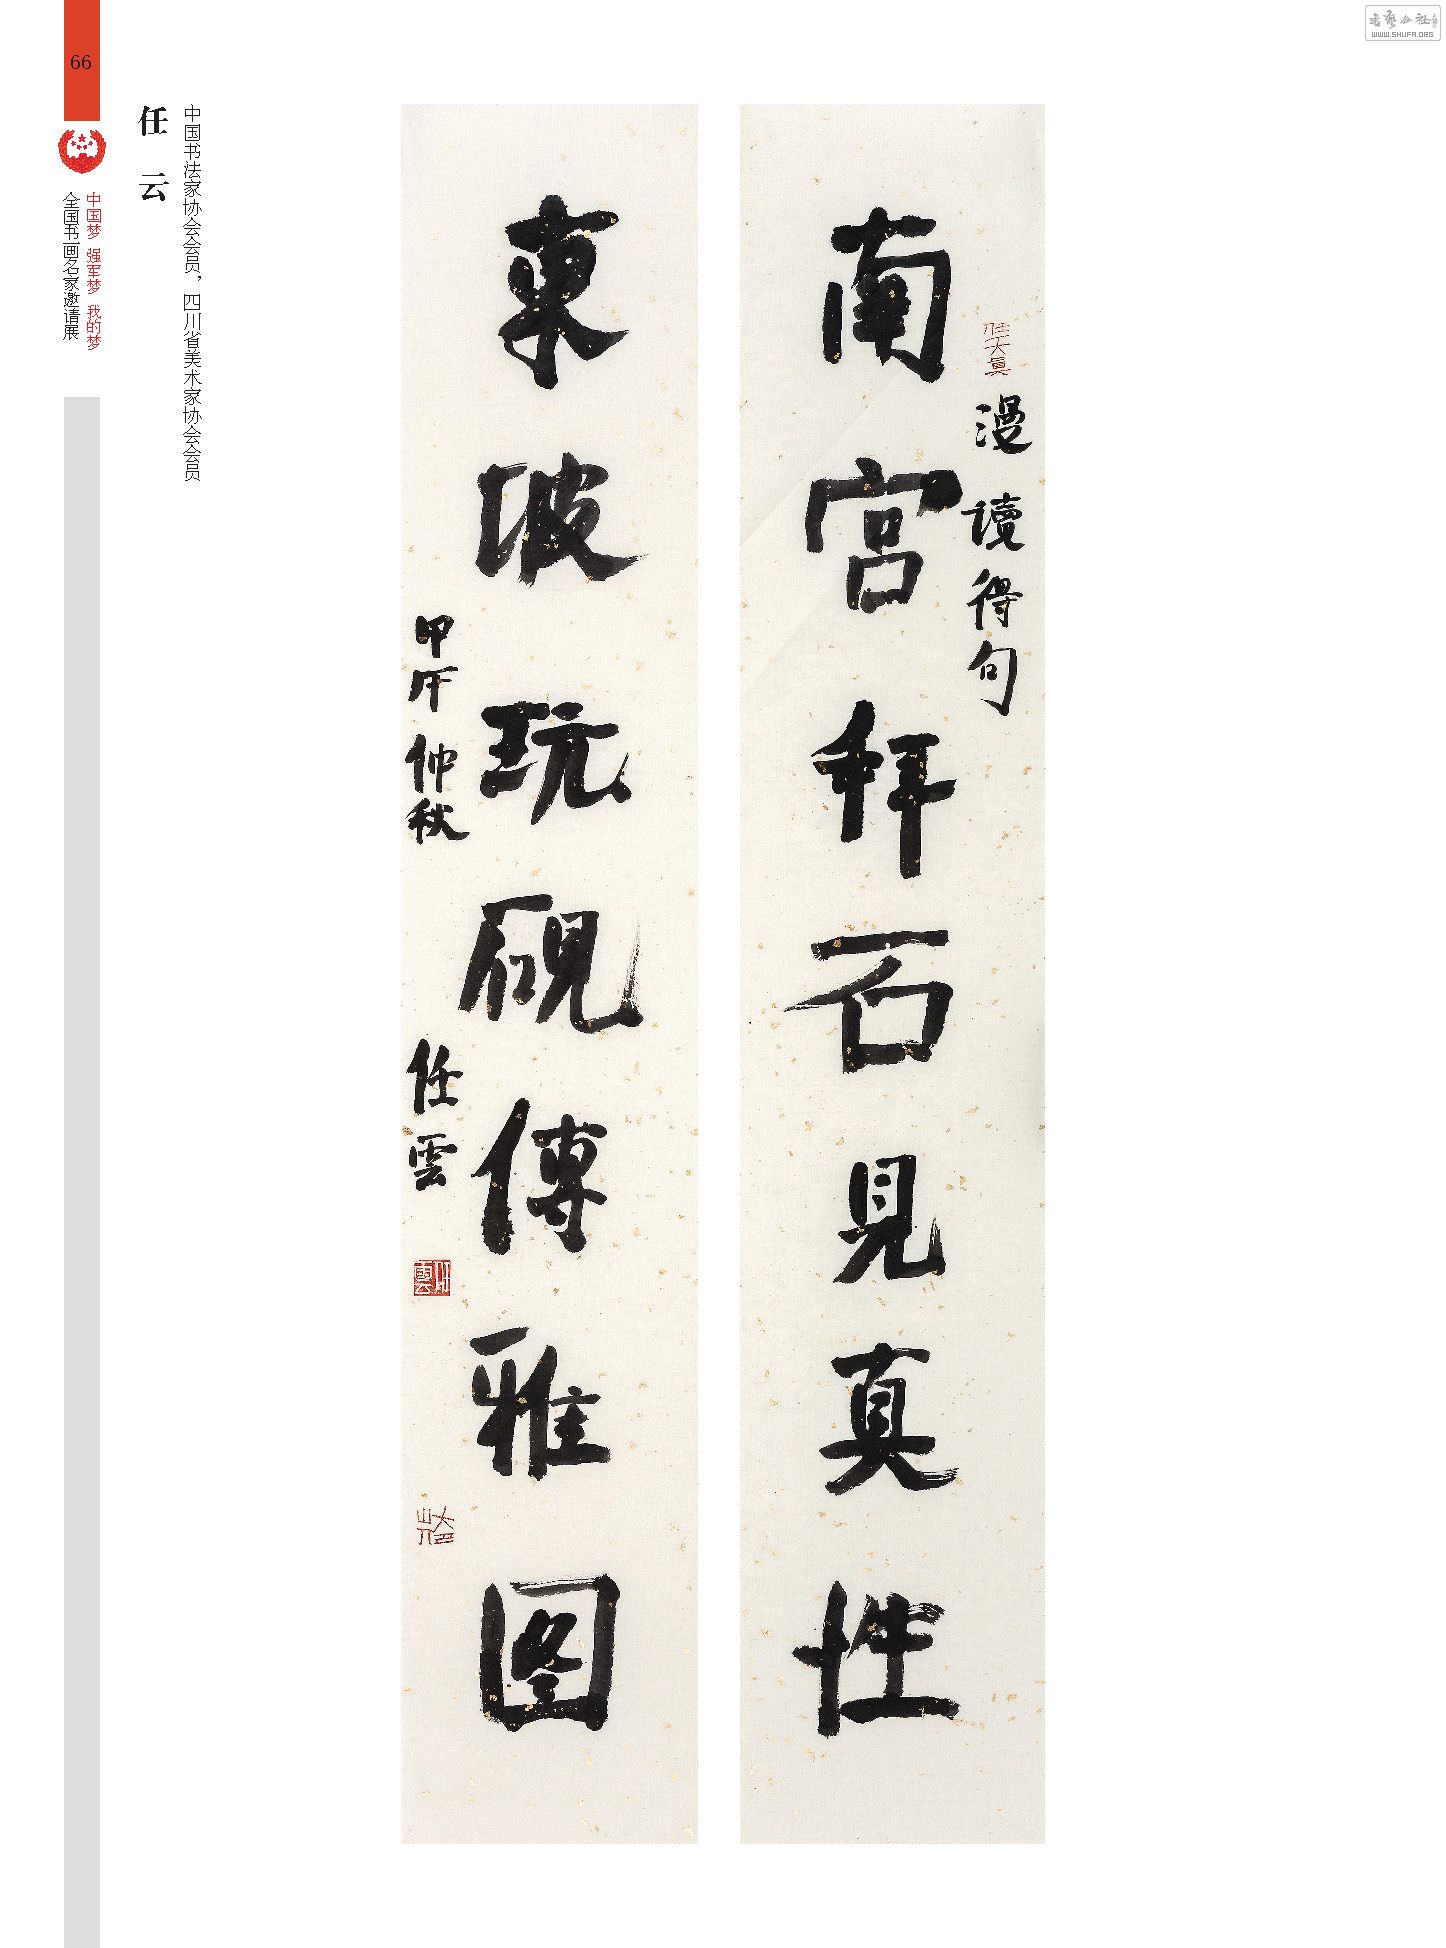 66
中国梦 强军梦 我的梦
全国书画名家邀请展
任 云
中国书法家协会会员，四川省美术家协会会员
任天真
漫讀得句
南宫拜石見真性
東坡玩硯傳雅图
甲午仲秋
任雲
任雲
WWW.SHUFA.ORG